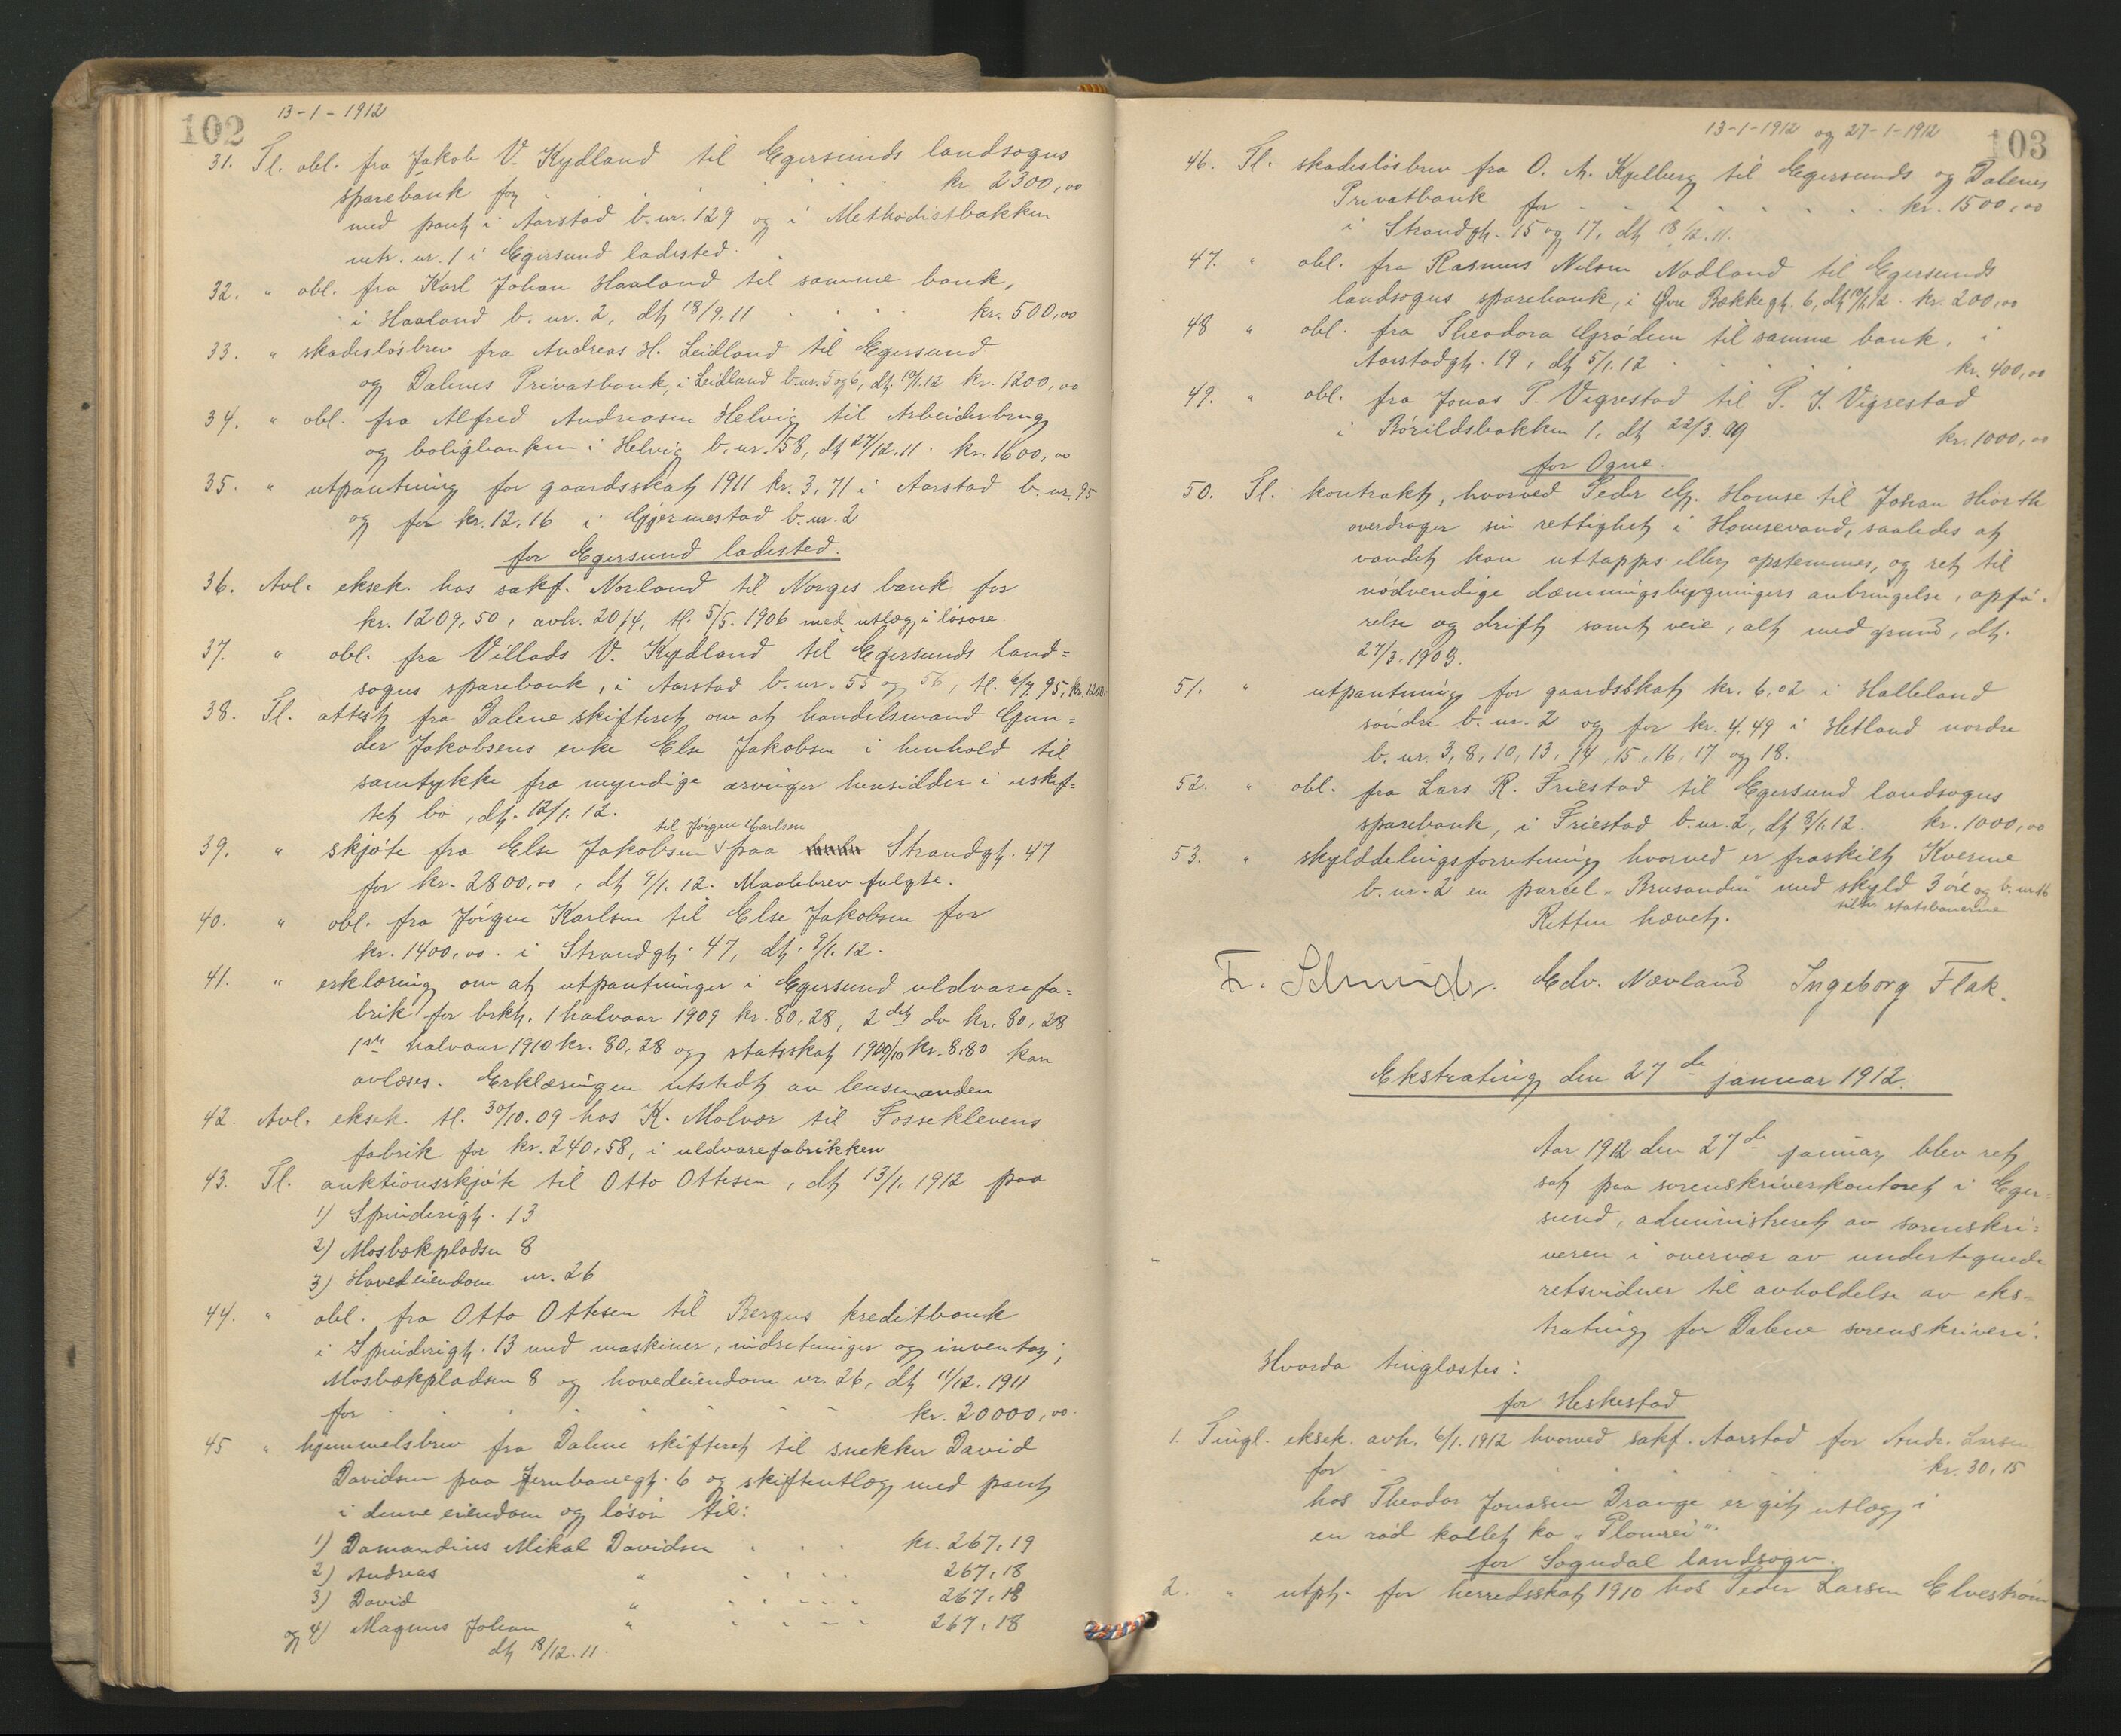 102
13-1-1912
31. Tl. obl. fra Jakob V. Kydland til Egersunds landsogns
sparebank for kr. 2300,00
med pant i Aarstad b.nr. 129 og i Methodistbakken
mtr. nr. 1 i Egersund ladested.
32. " obl. fra Karl Johan Haaland til samme bank,
i Haaland b. nr. 2, dt 18/9.11 kr. 500,00
33. " skadesløsbrev fra Andreas H. Leidland til Egersund
og Dalenes Privatbank, i Leidland b.nr. 5 og 6, dt. 10/1.12 kr. 1200,00
34. " obl. fra Alfred Andreasen Helvig til Arbeiderbrug
og boligbanken i Helvig b. nr. 58, dt 27/12.11. kr. 1600,00
35. " utpantning for gaardsskat 1911 kr. 3,71 i Aarstad b. nr. 95
og for kr. 12,16 i Gjermestad b. nr. 2
for Egersund ladested.
36. Avl. eksek. hos sakf. Norland til Norges bank for
kr. 1209,50, avh. 20/4, tl. 5/5. 1906 med utlæg i løsøre.
37. " obl. fra Villads V. Kydland til Egersunds land=
sogns sparebank, i Aarstad b. nr. 55 og 56, tl. 6/7 95, kr. 1200
38. Tl. attest fra Dalene skifteret om at handelsmand Gun=
der Jakobsens enke Else Jakobsen i henhold til
samtykke fra myndige arvinger hensidder i uskif=
tet bo, dt. 12/1. 12.
til Jørgen Carlsen
39. " skjøte fra Else Jakobsen v paa Strandgt. 47
for kr. 2800,00, dt 9/1. 12. Maalebrev fulgte.
40. " obl. fra Jørgen Karlsen til Else Jakobsen for
kr. 1400,00. i Strandgt. 47, dt. 9/1. 12.
41. " erklæring om at utpantninger i Egersund uldvarefa=
brik for brkt. 1 halvaar 1909 kr. 80,28, 2det do kr. 80,28
1ste halvaar 1910 kr. 80,28 og statsskat 1909/10 kr. 8,80 kan
avlæses. Erklæringen utstedt av lensmanden
42. Avl. eksek. tl. 30/10.09 hos K. Malvær til Fosseklevens
fabrik for kr. 240,58, i uldvarefabrikken
43. Tl. auktionsskjøte til Otto Ottesen, dt 13/1. 1912 paa
1) Spinderigt. 13
2) Mosbækpladsen 8
3) Hovedeiendom nr. 26
44. " obl. fra Otto Ottesen til Bergens kreditbank
i Spinderigt. 13 med maskiner, indretninger og inventar,
Mosbækpladsen 8 og hovedeiendom nr. 26, dt 11/12. 1911
for kr. 20000,00.
45 " hjemmelsbrev fra Dalene skifteret til snekker David
Davidsen paa Jernbanegt. 6 og skifteutlæg med pant
i denne eiendom og løsøre til:
1) Damandius Mikal Davidsen kr. 267,19
2) Andreas " 267,18
3) David " 267,18
og 4) Magnus Johan " 267,18
dt 18/12.11.
13-1-1912 og 27-1-1912
103
46. Tl. skadesløsbrev fra O. A. Kjelberg til Egersunds og Dalenes
Privatbank for kr. 1500,00
i Strandgt. 15 og 17, dt 18/12.11.
47. " obl. fra Rasmus Nilsen Nodland til Egersunds
landsogns sparebank, i Øvre Bækkegt. 6, dt 10/1.12. kr. 200,00
48 " obl. fra Theodora Grødem til samme bank, i
Aarstadgt. 19, dt 5/1.12 kr. 400,00
49. " obl. fra Jonas P. Vigrestad til P. J. Vigrestad
i Bórildsbakken 1, dt 22/3. 09 kr. 1000,00
for Ogne.
50. Tl. kontrakt, hvorved Peder Homse til Johan Hiorth
overdrager sin rettighet i Homsevand, saaledes at
vandet kan uttappes eller opstemmes, og ret til
nødvendige dæmningsbygningers anbringelse, opfø-
relse og drift samt veie, alt med grund, dt.
27/3. 1909.
51. " utpantning for gaardsskat kr. 6,02 i Halleland
søndre b. nr. 2 og for kr. 4,49 i Hetland nordre
b. nr. 3, 8, 10, 13, 14, 15, 16, 17 og 18.
52. " obl. fra Lars R. Friestad til Egersund landsogns
sparebank, i Friestad b. nr. 2, dt 8/1.12. kr. 1000,00
53. " skylddelingsforretning hvorved er fraskilt Kverme
b. nr. 2 en parcel "Brusanden" med skyld 3 øre og b. nr. 16
tilh. statsbanerne
Retten hævet.
Fr. Schmidt. Edv. Nævland Ingeborg Flak.
Ekstrating den 27de januar 1912.
Aar 1912 den 27de januar blev ret
sat paa sorenskriverkontoret i Eger=
sund, administreret av sorenskri=
veren i overvær av undertegnede
retsvidner til avholdelse av eks=
trating for Dalene sorenskriveri.
Hvorda tinglæstes:
for Heskestad
1. Tingl. eksek. avh. 6/1. 1912 hvorved sakf. Aarstad for Andr. Larsen
for kr. 30,15
hos Theodor Jonasen Drange er git utlæg i
en rød kollet ko "Plomrei".
for Sogndal landsogn.
2. " utpt. for herredsskat 1910 hos Peder Larsen Elvestrøm